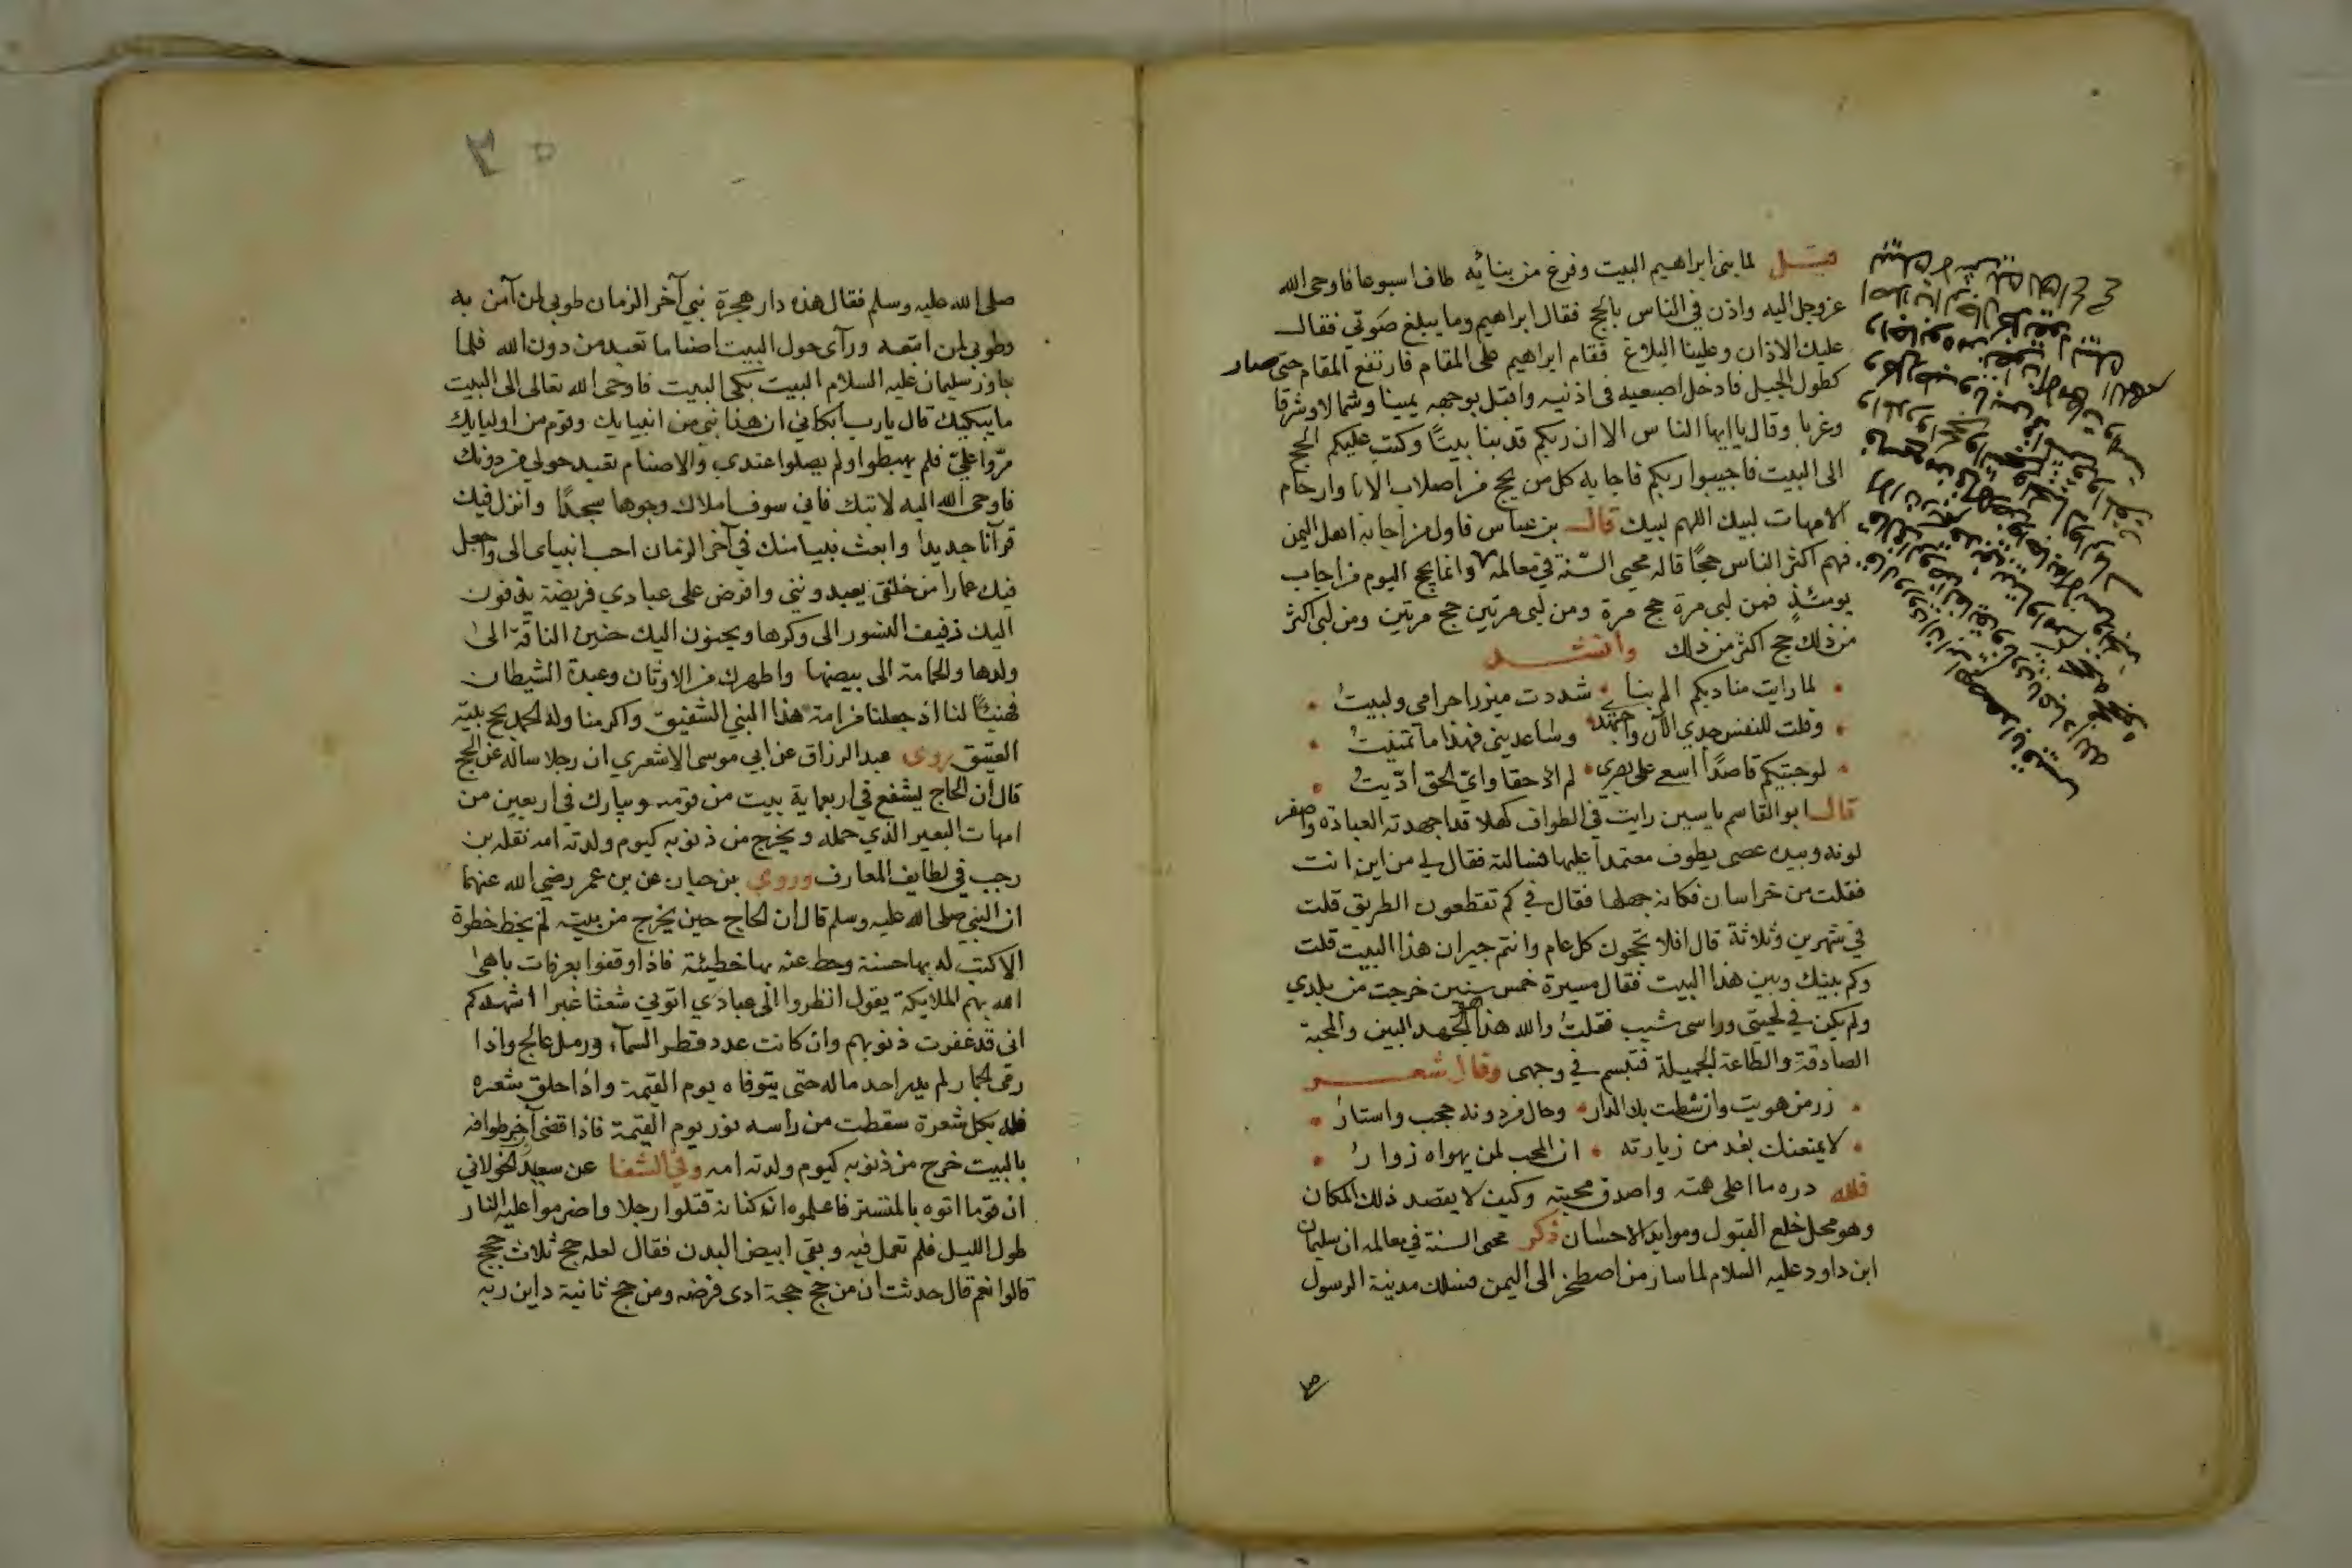 قيل لما بنى ابراهيم البيت وفرغ من بنائه طاف اسبوعا فاوحى الله
عز وجل اليه واذن في الناس بالحج فقال ابراهيم وما يبلغ صوتي فقال
عليك الاذان وعلينا البلاغ فقام ابراهيم على المقام فارتفع المقام حتى صار
كطول الجبل فادخل اصبعيه في اذنيه واقبل بوجهه يمينا وشمالا وشرقا
وغربا وقال يا ايها الناس الا ان ربكم قد بنا بيتا وكتب عليكم الحج
الى البيت فاجيبوا ربكم فاجابه كل من يحج من اصلاب الابا وارحام
الامهات لبيك اللهم لبيك قال بن عباس فاول من اجابه اهل اليمن
فهم اكثر الناس حجا قاله محيي السنة في معالمه وانما يحج اليوم من اجاب
يومئذ فمن لبى مرة حج مرة ومن لبى مرتين حج مرتين ومن لبى اكثر
من ذلك حج اكثر من ذلك وانشد
لما رايت مناديكم الم بنا شددت ميزر احرامي ولبيت
وقلت للنفس جدي الآن واجتهدي وساعديني فهذا ما تمنيت
لو جيتكم قاصدا اسعى على بصري لم اد حقا واي الحق اديت
قال ابو القاسم ياسين رايت في الطواف كهلا قد اجهدته العبادة واصفر
لونه وبيده عصى يطوف معتمدا عليها فسالته فقال لي من اين انت
فقلت من خراسان فكانه جهلها فقال في كم تقطعون الطريق قلت
في شهرين وثلاثة قال افلا تحجون كل عام وانتم جيران هذا البيت قلت
وكم بينك وبين هذا البيت فقال مسيرة خمس سنين خرجت من بلدي
ولم يكن في لحيتي وراسي شيب فقلت والله هذا الجهد البين والمحبة
الصادقة والطاعة الجميلة فتبسم في وجهي وقال شعر
زر من هويت وان شطت بك الدار وحال من دونه حجب واستار
لا يمنعنك بعد من زيارته ان المحب لمن يهواه زوار
فلله دره ما اعلى همته واصدق محبته وكيف لا يقصد ذلك المكان
وهو محل خلع القبول وموايد الاحسان ذكر محيي السنة في معالمه ان سليمان
ابن داود عليه السلام لما سار من اصطخر الى اليمن فسلك مدينة الرسول
صلى الله عليه وسلم فقال هذه دار هجرة نبي آخر الزمان طوبى لمن آمن به
وطوبى لمن اتبعه ورآى حول البيت اصناما تعبد من دون الله فلما
جاوز سليمان عليه السلام البيت بكى البيت فاوحى الله تعالى الى البيت
ما يبكيك قال يا رب ابكاني ان هذا نبي من انبيايك وقوم من اوليايك
مروا علي فلم يهبطوا ولم يصلوا عندي والاصنام تعبد حولي من دونك
فاوحى الله اليه لا تبك فاني سوف املاك وجوها سجدا وانزل فيك
قرآنا جديدا وابعث نبيا منك في آخر الزمان احب انبياي الي واجعل
فيك عمارا من خلقي يعبدونني وافرض على عبادي فريضة يذفون
اليك ذفيف النسور الى وكرها ويحنون اليك حنين الناقة الى
ولدها والحمامة الى بيضها واطهرك من الاوثان وعبدة الشيطان
فهنيئا لنا اذ جعلنا من امة هذا النبي الشفيق واكرمنا وله الحمد بحج بيته
العتيق روى عبد الرزاق عن ابي موسى الاشعري ان رجلا ساله عن الحج
قال ان الحاج يشفع في اربعماية بيت من قومه ويبارك في اربعين من
امهات البعير الذي حمله ويخرج من ذنوبه كيوم ولدته امه نقله بن
رجب في لطايف المعارف وروي بن حبان عن بن عمر رضي الله عنهما
ان النبي صلى الله عليه وسلم قال ان الحاج حين يخرج من بيته لم يخط خطوة
الا كتب له بها حسنة وحط عنه بها خطيئة فاذا وقفوا بعرفات باهى
الله بهم الملايكة يقول انظروا الى عبادي اتوني شعثا غبرا اشهدكم
انى قد غفرت ذنوبهم وان كانت عدد قطر السمآء ورمل عالج واذا
رمى الجمار لم يدر احد ماله حتى يتوفاه يوم القيمة واذا حلق شعره
فله بكل شعرة سقطت من راسه نور يوم القيمة فاذا قضى آخر طوافه
بالبيت خرج من ذنوبه كيوم ولدته امه وفي الشفا عن سعيد الخولاني
ان قوما اتوه بالمنستير فاعلموه ان كتامة قتلوا رجلا واضرموا عليه النار
طول الليل فلم تعمل فيه وبقي ابيض البدن فقال لعله حج ثلاث حجج
قالوا نعم قال حدثت ان من حج حجة ادى فرضه ومن حج ثانية داين ربه